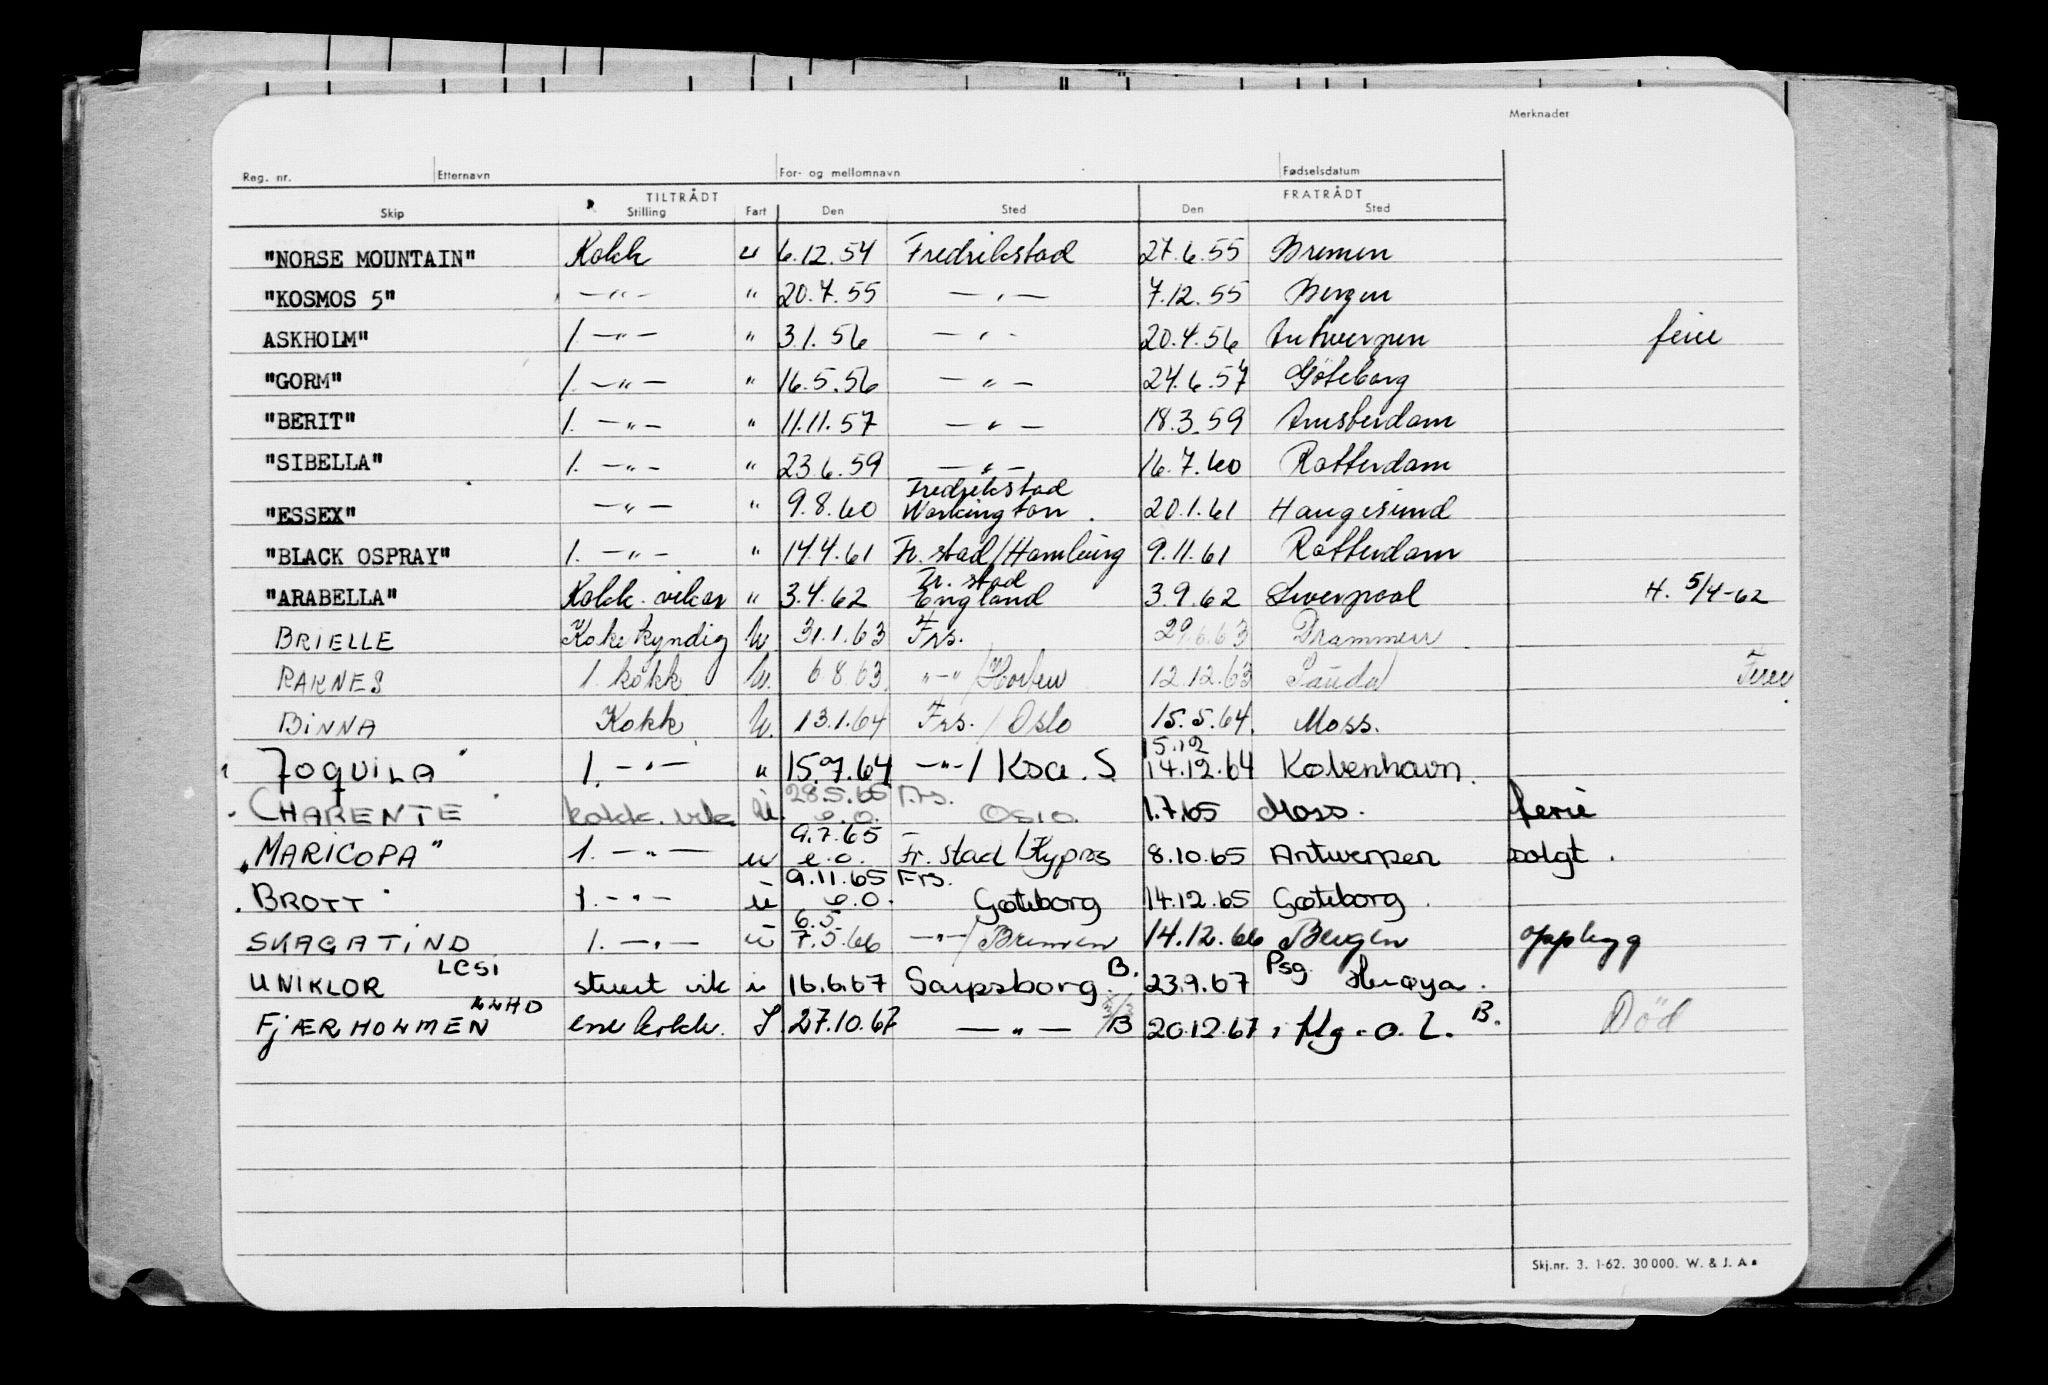 Merknader
Reg. nr. Etternavn For- og mellomnavn Fødselsdatum
TILTRÅDT FRATRÅDT
Skip Stilling Fart Den Sted Den Sted
"NORSE MOUNTAIN" Kokk u 6.12.54 Fredrikstad 27.6.55 Bremen
"KOSMOS 5" —"— " 20.7.55 —"— 7.12.55 Bergen
ASKHOLM" 1. —"— " 3.1.56 —"— 20.4.56 Antwerpen ferie
"GORM" 1. —"— " 16.5.56 —"— 24.6.57 Göteborg
"BERIT" 1. —"— " 11.11.57 —"— 18.3.59 Amsterdam
"SIBELLA" 1. —"— " 23.6.59 —"— 16.7.60 Rotterdam
Fredrikstad
"ESSEX" —"— " 9.8.60 Workington. 20.1.61 Haugesund
"BLACK OSPRAY" 1. —"— " 14.4.61 Fr. stad/Hamburg 9.11.61 Rotterdam
Fr. stad
"ARABELLA" Kokk. vikar " 3.4.62 England 3.9.62 Liverpool H. 5/4-62
BRIELLE Kokekyndig U. 31.1.63 Frs. 29.6.63 Drammen
RAKNES 1. kokk U. 6.8.63 "-"/Horten 12.12.63 Sauda Ferie
BINNA Kokk U. 13.1.64 Frs. / Oslo 15.5.64. Moss.
15.12
JOQUILA" 1. —"— " 15.9.64 —"—/ Ksa. S 14.12.64 København.
28.5.65 Frs.
CHARENTE kokk. vik U. e.o. Oslo. 1.7.65 Moss. ferie
9.7.65
"MARICOPA" 1. —"— u e.o. Fr. stad/Kypros 8.10.65 Antwerpen solgt.
9.11.65 Frs.
BROTT" 1. —"— u e.o. Gøteborg 14.12.65 Gøteborg.
6.5
SKAGATIND 1. —"— u 7.5.66 —"—/Bremen 14.12.66 Bergen opphyg
LCSI B. Psg
UNIKLOR stuert vik u 16.6.67 Sarpsborg. 23.9.67 Herøya.
LLHD B.
FJÆRHOLMEN enekokk. I 27.10.67 —"— B 20.12.67 Mg. o. L. Død
Skj.nr. 3. 1-62. 30 000. W. & J. A